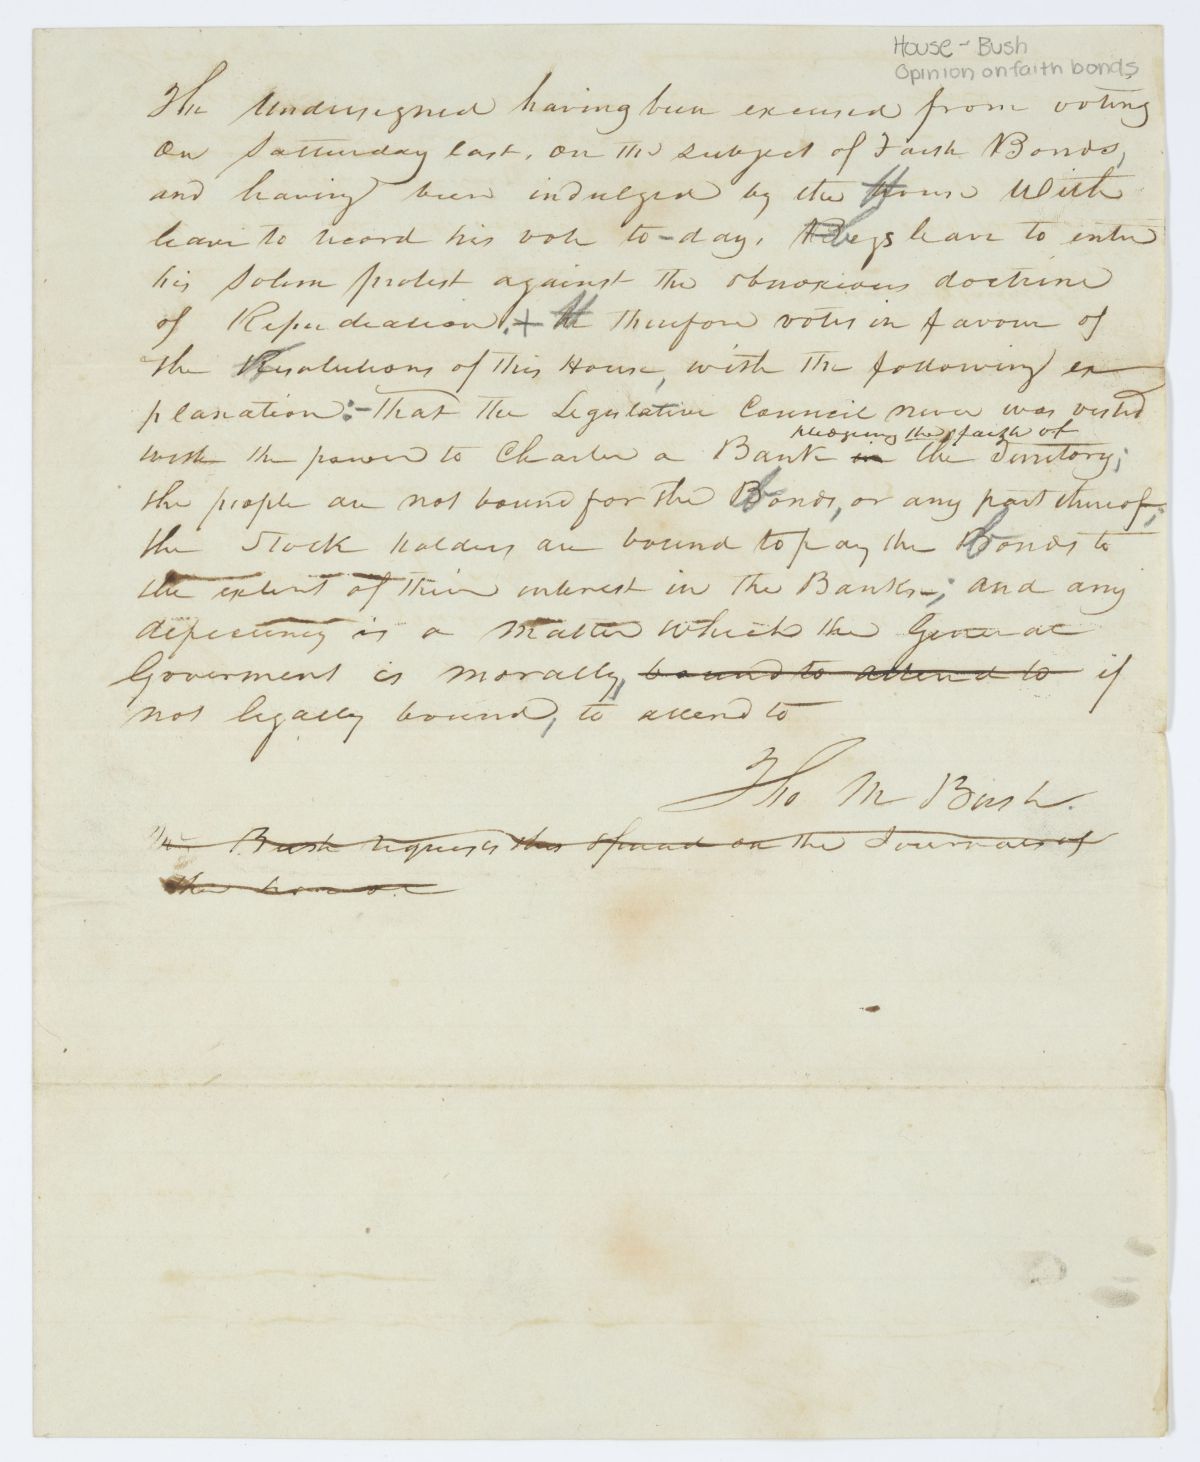 House - Bush
Opinion on faith bonds
The Undersigned having been excused from voting
on Satturday last, on the subject of Faith Bonds,
and having been indulged by the House With
leave to record his vote to-day, Begs leave to enter
his Solem protest against the obnoxious doctrine
of Repudiation. + He therefore votes in favour of
the Resolutions of this House, with the following ex
planation:- That the Legislative Council never was vested
pledging the faith of
with the power to Charter a Bank in the Territory;
the people are not bound for the Bonds, or any part thereof;
the Stock holders are bound to pay the Bonds to
the extent of their interest in the Banks-; and any
deficiency is a matter which the General
Goverment is morally, bound to attend to if
not legally bound, to attend to
Tho M Bush.
Mr Bush requests this spread on the Journals of
the house